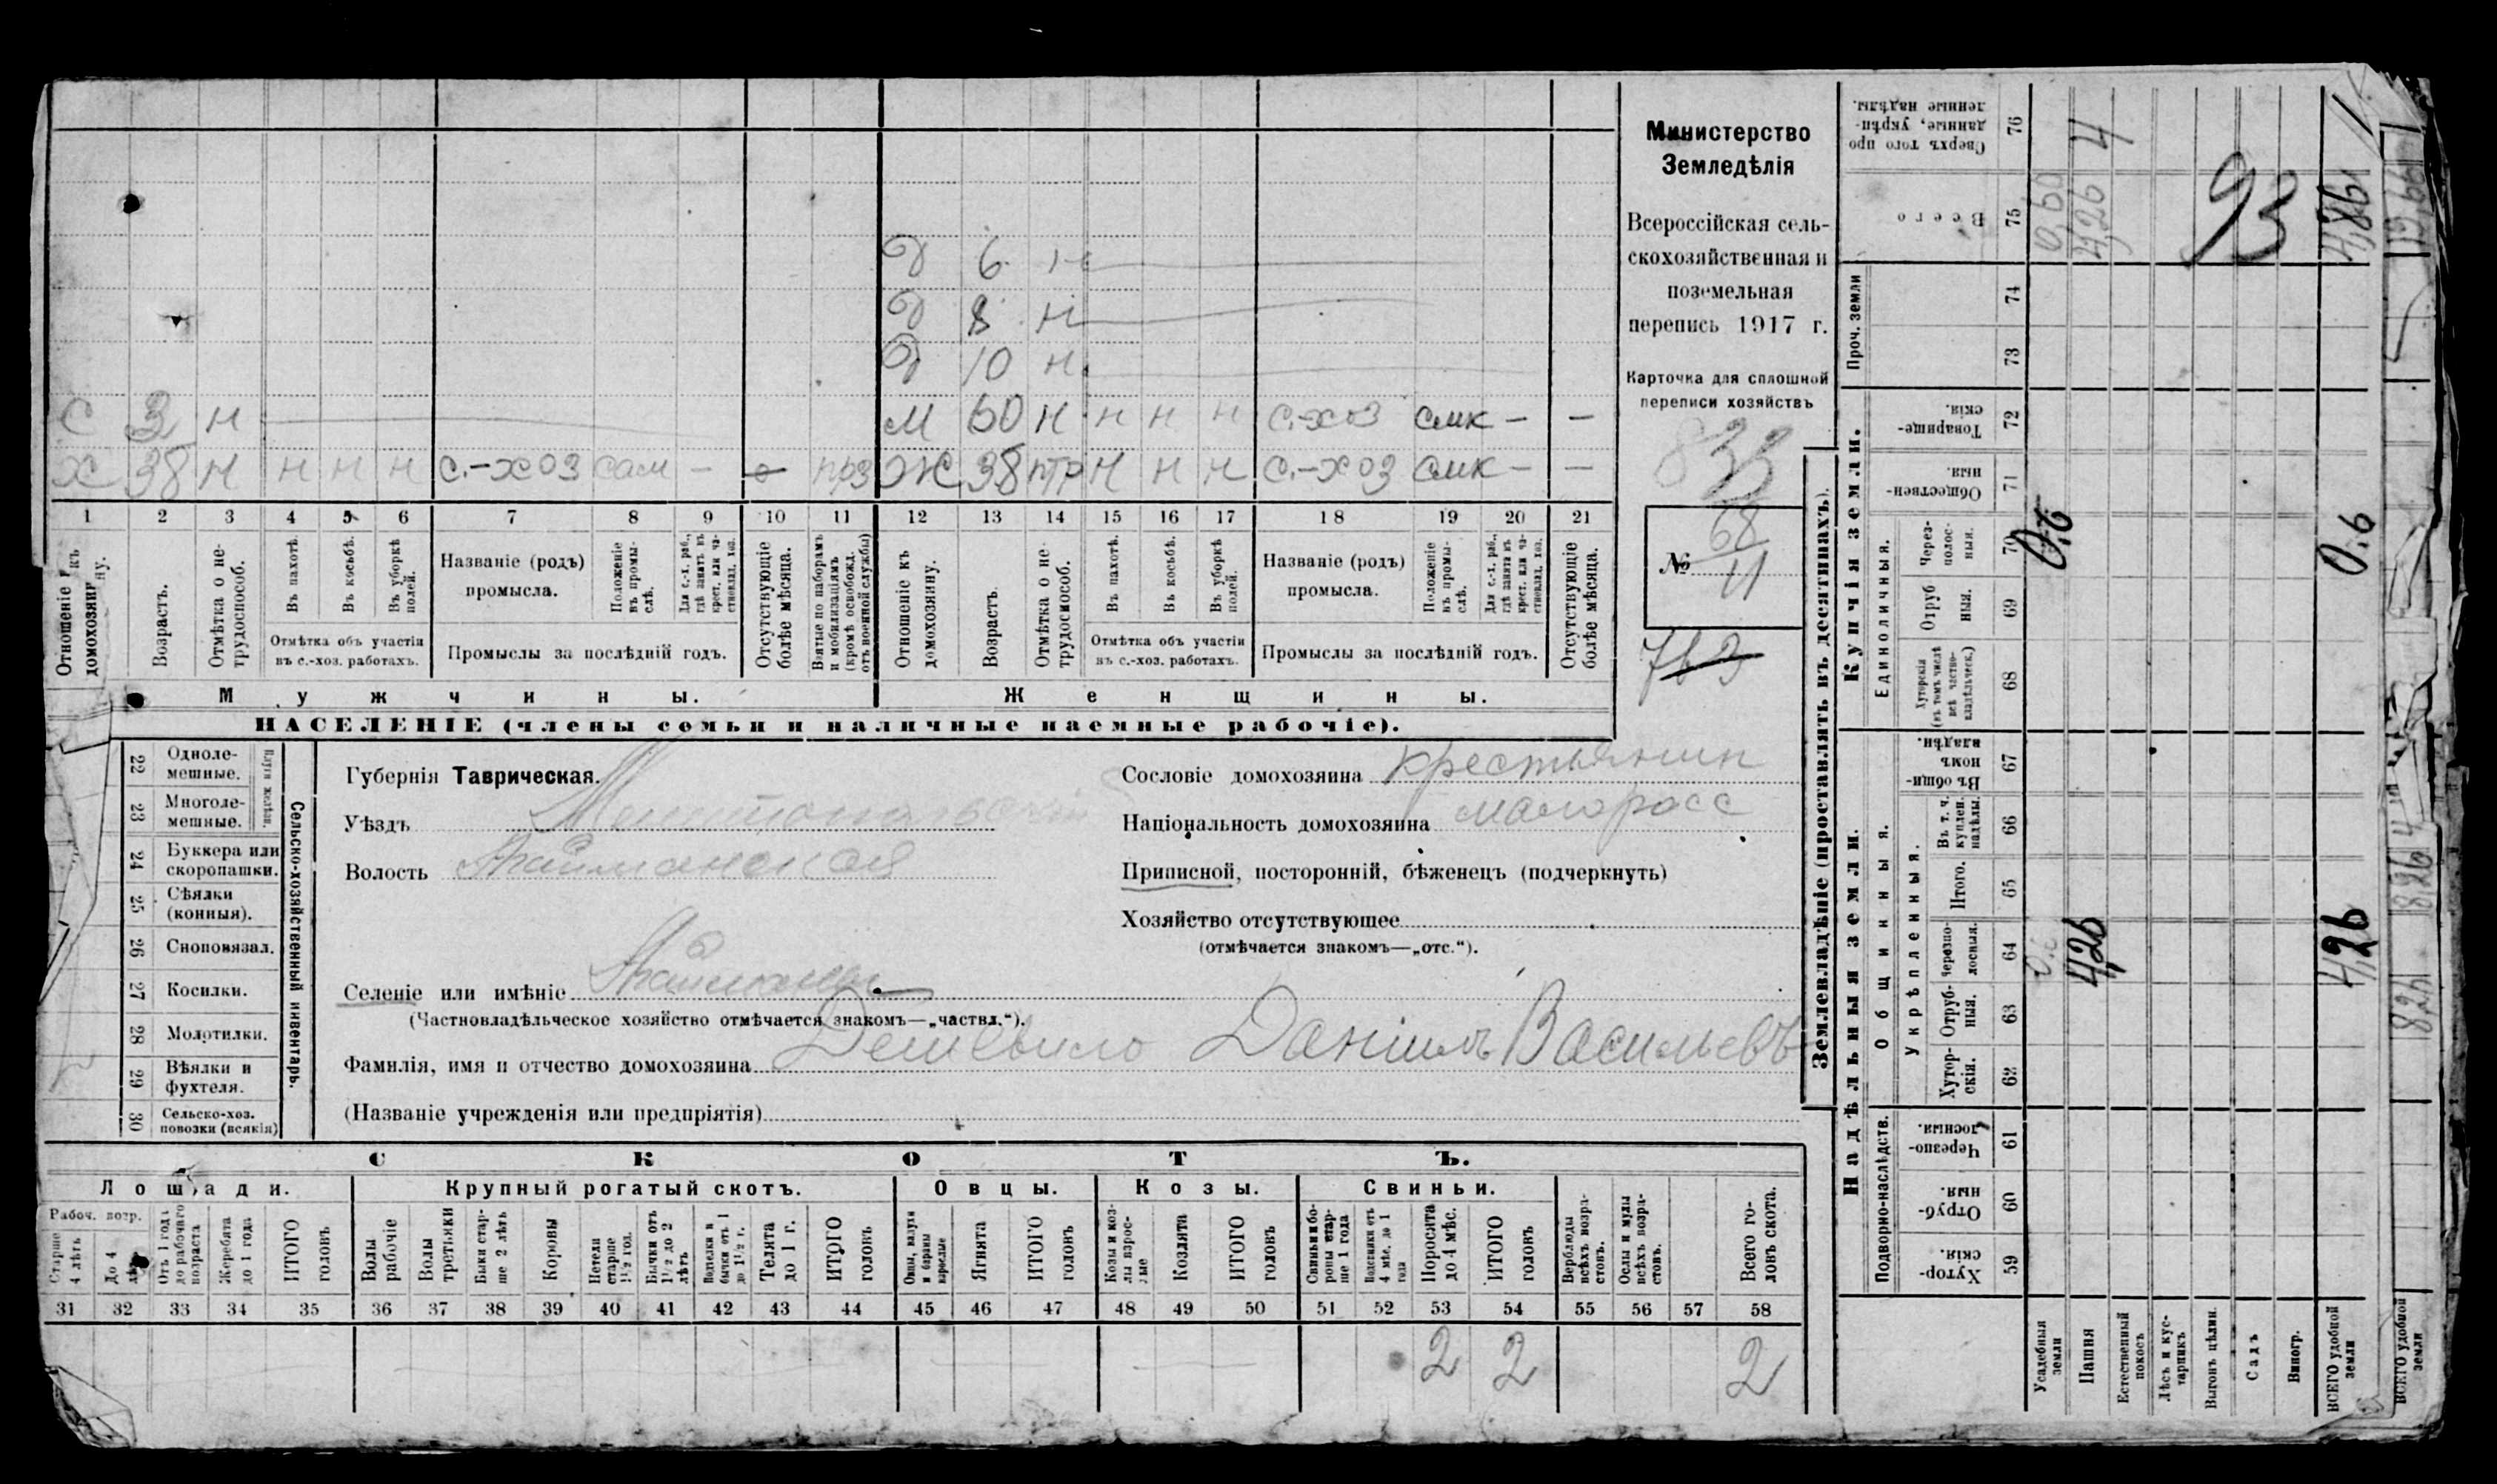 б 6 н
б 8 н
б 10 н
с 3 н м 60 н н н н с.-хоз смк – –
х 38 н н н н с.-хоз сам – прз ж 38 птр н н н с.-хоз смк – –
1 2 3 4 5 6 7 8 9 10 11 12 13 14 15 16 17 18 19 20 21
Отношеніе къ домохозяину.
Возрастъ.
Отмѣтка о не-
трудоспособ.
Въ пахотѣ.
Въ косьбѣ.
Въ уборкѣ
полей.
Отмѣтка объ участіи
въ с.-хоз. работахъ.
Названіе (родъ)
промысла.
Положеніе
въ промы-
слѣ.
Для с.-х. раб.,
гдѣ занятъ въ
крест. или ча-
стновлад. хоз.
Промыслы за послѣдній годъ.
Отсутствующіе
болѣе мѣсяца.
Взятые по наборамъ
и мобилизаціямъ
(кромѣ освобожд.
отъ военной службы)
Отношеніе къ
домохозяину.
Возрастъ.
Отмѣтка о не-
трудоспособ.
Въ пахотѣ.
Въ косьбѣ.
Въ уборкѣ
полей.
Отмѣтка объ участіи
въ с.-хоз. работахъ.
Названіе (родъ)
промысла.
Положеніе
въ промы-
слѣ.
Для с.-х. раб.,
гдѣ занята въ
крест. или ча-
стновлад. хоз.
Промыслы за послѣдній годъ.
Отсутствующіе
болѣе мѣсяца.
Мужчины. Женщины.
НАСЕЛЕНІЕ (члены семьи и наличные наемные рабочіе).
Министерство
Земледѣлія
Всероссійская сель-
скохозяйственная и
поземельная
перепись 1917 г.
Карточка для сплошной
переписи хозяйствъ
833
№ 68
11
763
22 Одноле-
мешные.
23 Многоле-
мешные.
Плуги желѣзн.
24 Буккера или
скоропашки.
25 Сѣялки
(конныя).
26 Сноповязал.
27 Косилки.
28 Молотилки.
29 Вѣялки и
фухтеля.
30 Сельско-хоз.
повозки (всякія)
Сельско-хозяйственный инвентарь.
Губернія Таврическая.
Уѣздъ Мелитопольскій
Волость
Селеніе или имѣніе
(Частновладѣльческое хозяйство отмѣчается знакомъ—„частвл.“).
Фамилія, имя и отчество домохозяина Даніилъ Васильевъ
(Названіе учрежденія или предпріятія)
Сословіе домохозяина крестьянин
Національность домохозяина малоросс
Приписной, посторонній, бѣженецъ (подчеркнуть)
Хозяйство отсутствующее
(отмѣчается знакомъ—„отс.“).
СКОТЪ.
Лошади. Крупный рогатый скотъ. Овцы. Козы. Свиньи.
Рабоч. возр.
Старше
4 лѣтъ
До 4
лѣтъ
Отъ 1 года
до рабочаго
возраста
Жеребята
до 1 года
ИТОГО
головъ
Волы
рабочіе
Волы
третьяки
Быки стар-
ше 2 лѣтъ
Коровы
Нетели
старше
1½ год.
Бычки отъ
1½ до 2
лѣтъ
Подтелки и
бычки отъ 1
до 1½ г.
Телята
до 1 г.
ИТОГО
головъ
Овцы, валухи
и бараны
взрослые
Ягнята
ИТОГО
головъ
Козы и коз-
лы взрос-
лые
Козлята
ИТОГО
головъ
Свиньи и бо-
ровы стар-
ше 1 года
Подсвинки отъ
4 мѣс. до 1
года
Поросята
до 4 мѣс.
ИТОГО
головъ
Верблюды
всѣхъ возра-
стовъ.
Ослы и мулы
всѣхъ возра-
стовъ.
Всего го-
ловъ скота.
31 32 33 34 35 36 37 38 39 40 41 42 43 44 45 46 47 48 49 50 51 52 53 54 55 56 57 58
2 2 2
Землевладѣніе (проставлять въ десятинахъ).
Надѣльныя земли. Купчія земли. Проч. земли
Подворно-наслѣдств. Общинныя. Единоличныя.
Укрѣпленныя.
Хутор-
скія. 59
Отруб-
ныя. 60
Черезпо-
лосныя. 61
Хутор-
скія. 62
Отруб-
ныя. 63
Черезпо-
лосныя. 64
Итого. 65
Въ т. ч.
куплен.
надѣлы. 66
Въ общин-
номъ
владѣн. 67
Хуторскія
(въ томъ числѣ
всѣ частно-
владѣльческ.) 68
Отруб
ныя. 69
Через-
полос-
ныя. 70
Обществен-
ныя. 71
Товарище-
скія. 72
73
74
Всего 75
Сверхъ того про
данные, укрѣп-
ленные надѣлы. 76
Усадебныя
земли 0.6 0,60
Пашня 4,26 4,26 4
Естественный
покосъ
Лѣсъ и кус-
тарникъ
Выгонъ цѣлин.
Садъ
Виногр.
93
ВСЕГО удобной
земли 4,26 0.6 4,86
ВСЕГО удобной
земли